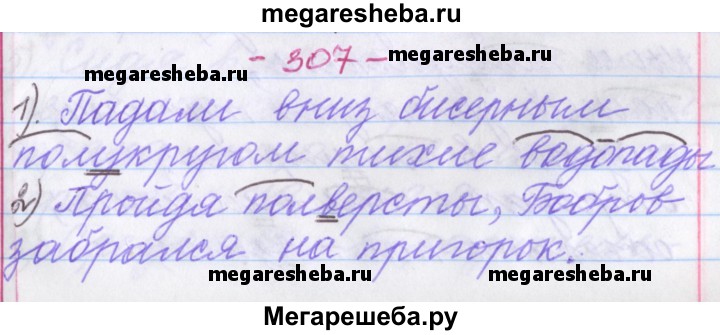 megaresheba.ru
- 307 -
megaresheba.ru
1). Падали вниз бисерным
полукругом тихие водопады
2) Пройдя полверсты, Бобров
забрался на пригорок.
megaresheba.ru
megaresheba.ru
Мегарешеба.ру